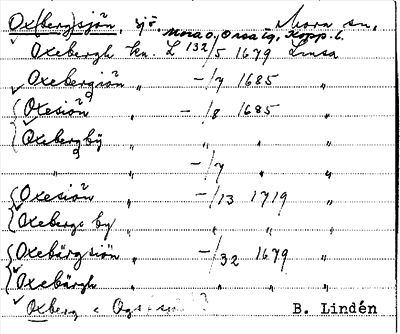 Ox(berg)sjön, sjö Mora sn,
Mora o. Orsa tg, Kopp. l.
Oxebergh kn. L 132/5 1679 Lmsa
Oxebergiön " -/7 1685 "
Oxesiön " -/8 1685 "
Oxebergby "
" " -/7 " "
Oxesiön " -/13 1719 "
Oxebergs by " " " "
Oxebärgsiön " -/32 1679 "
Oxebärgh " " " "
Oxberg
B. Lindén